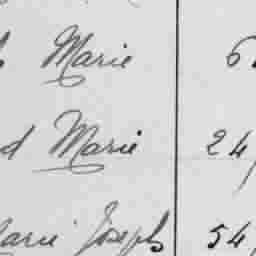 Marie
Marie 24
Marie Joseph 54